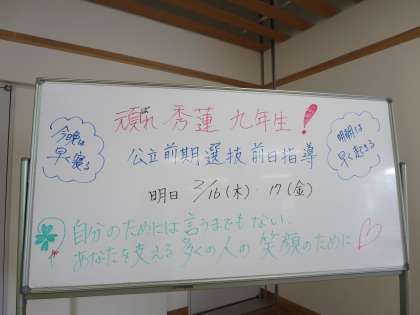 頑ばれ 秀蓮 九年生!
今晩は
早く寝る
明朝は
早く起きる
公立前期選抜 前日指導
明日 2/16(木)・17(金)
自分のためには言うまでもない、
あなたを支える多くの人の笑顔のために